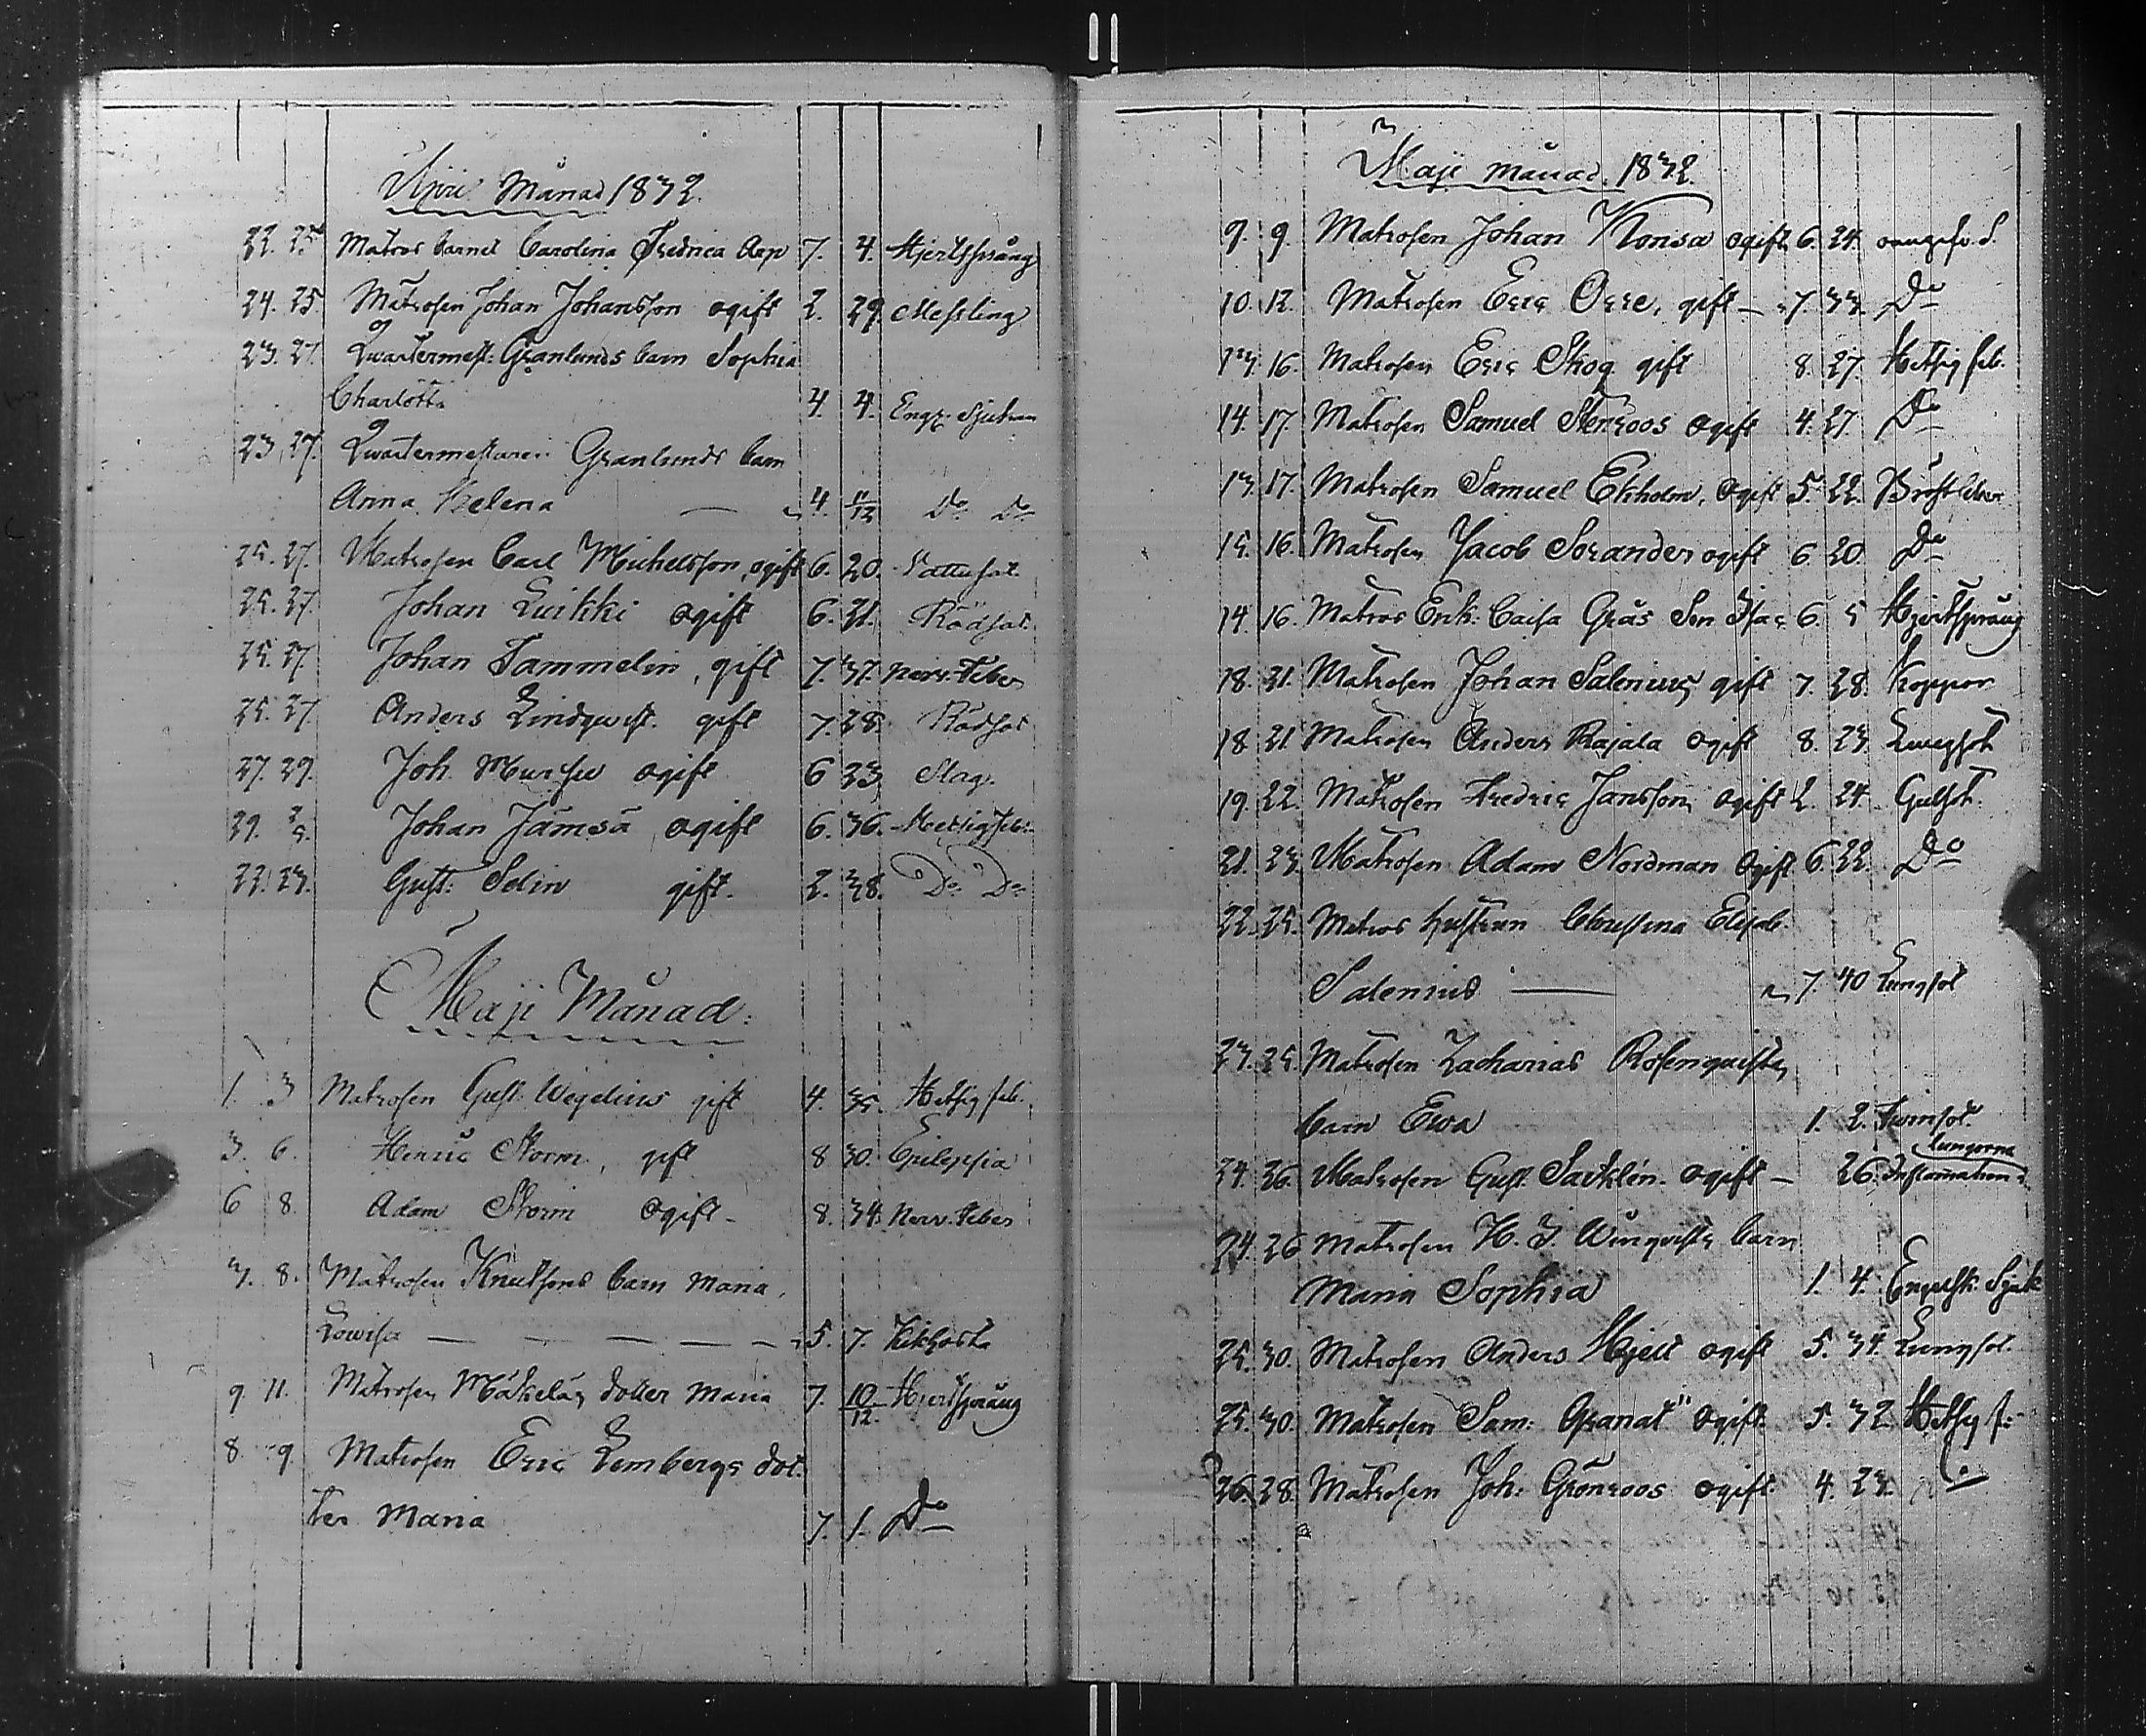 April Månad 1832.
22. 25. Matros barnet Carolina Fredrica Asp 7. 4. Hjertsprång
24. 25. Matrosen Johan Johansson ogift 2. 29. Messling
23. 27. Qwartermest: Granlunds barn Sophia
Charlotta 4. 4. Eng. Sjukan
23. 27. Qwartermestaren Granlunds barn
Anna Helena — 4. 11/12 Do Do
25. 27. Matrosen Carl Michelsson, ogift 6. 20. Vattusot
25. 27. Johan Luikki ogift 6. 21. Rödsot
25. 27. Johan Tammelin, gift 7. 37. Nerv. Feber
25. 27. Anders Lindqwist gift 7. 28. Rödsot
27. 29. Joh. Mursu ogift 6 23 Slag.
29. 2/5. Johan Jämsä ogift 6. 36. Hetsig feb.
22. 23. Gust: Selin gift. 2. 38. Do Do
Maji Månad:
1. 3 Matrosen Gust. Wegelius gift 4. 35. Hetsig feb.
3. 6. Henric Storm, gift 8 30. Epilepsia
6 8. Adam Storm ogift 8. 34. Nerv. Feber
3. 8. Matrosen Knutsons barn Maria
Lowisa — — — — 5. 7. Kikhosta
9 11. Matrosen Mäkeläs dotter Maria 7. 10/12. Hjertsprång
8. 9. Matrosen Eric Lembergs dot-
ter Maria 7. 1. Do
Maji månad. 1832.
9. 9. Matrosen Johan Konsa ogift 6. 24. oangifv. S.
10. 12. Matrosen Eric Orre, gift — 7. 33. Do
13. 16. Matrosen Eric Skog gift 8. 27. Hetsig feb.
14. 17. Matrosen Samuel Stenroos ogift 4. 27. Do
13. 17. Matrosen Samuel Ekholm, ogift 5. 22. Bröstfeber
15. 16. Matrosen Jacob Sorander ogift 6 20. Do
14. 16. Matros Enk: Caisa Grås Son Isac 6. 5 Hjertsprång
18. 21. Matrosen Johan Salenius gift 7. 28. Koppor
18 21 Matrosen Anders Rajala ogift 8. 23. Lungsot
19. 22. Matrosen Fredric Jansson ogift 2. 24. Gulsot.
21. 23. Matrosen Adam Nordman ogift 6. 22. Do
22. 25. Matros hustrun Christina Elisab.
Salenius — 7. 40 Lungsot
23. 25. Matrosen Zacharias Rosenqvists
barn Ewa 1. 2. Twinsot.
24. 26. Matrosen Gust. Sarklén ogift — 26. Inflamation i
lungorna
24. 26 Matrosen H. J. Winqvists barn
Maria Sophia 1. 4. Engelsk. Sjuk
25. 30. Matrosen Anders Hjelt ogift 5. 34. Lungsot.
25. 30. Matrosen Sam: Granat ogift 5. 32 Hetsig f:
26. 28. Matrosen Joh: Grönroos ogift 4. 23. Do